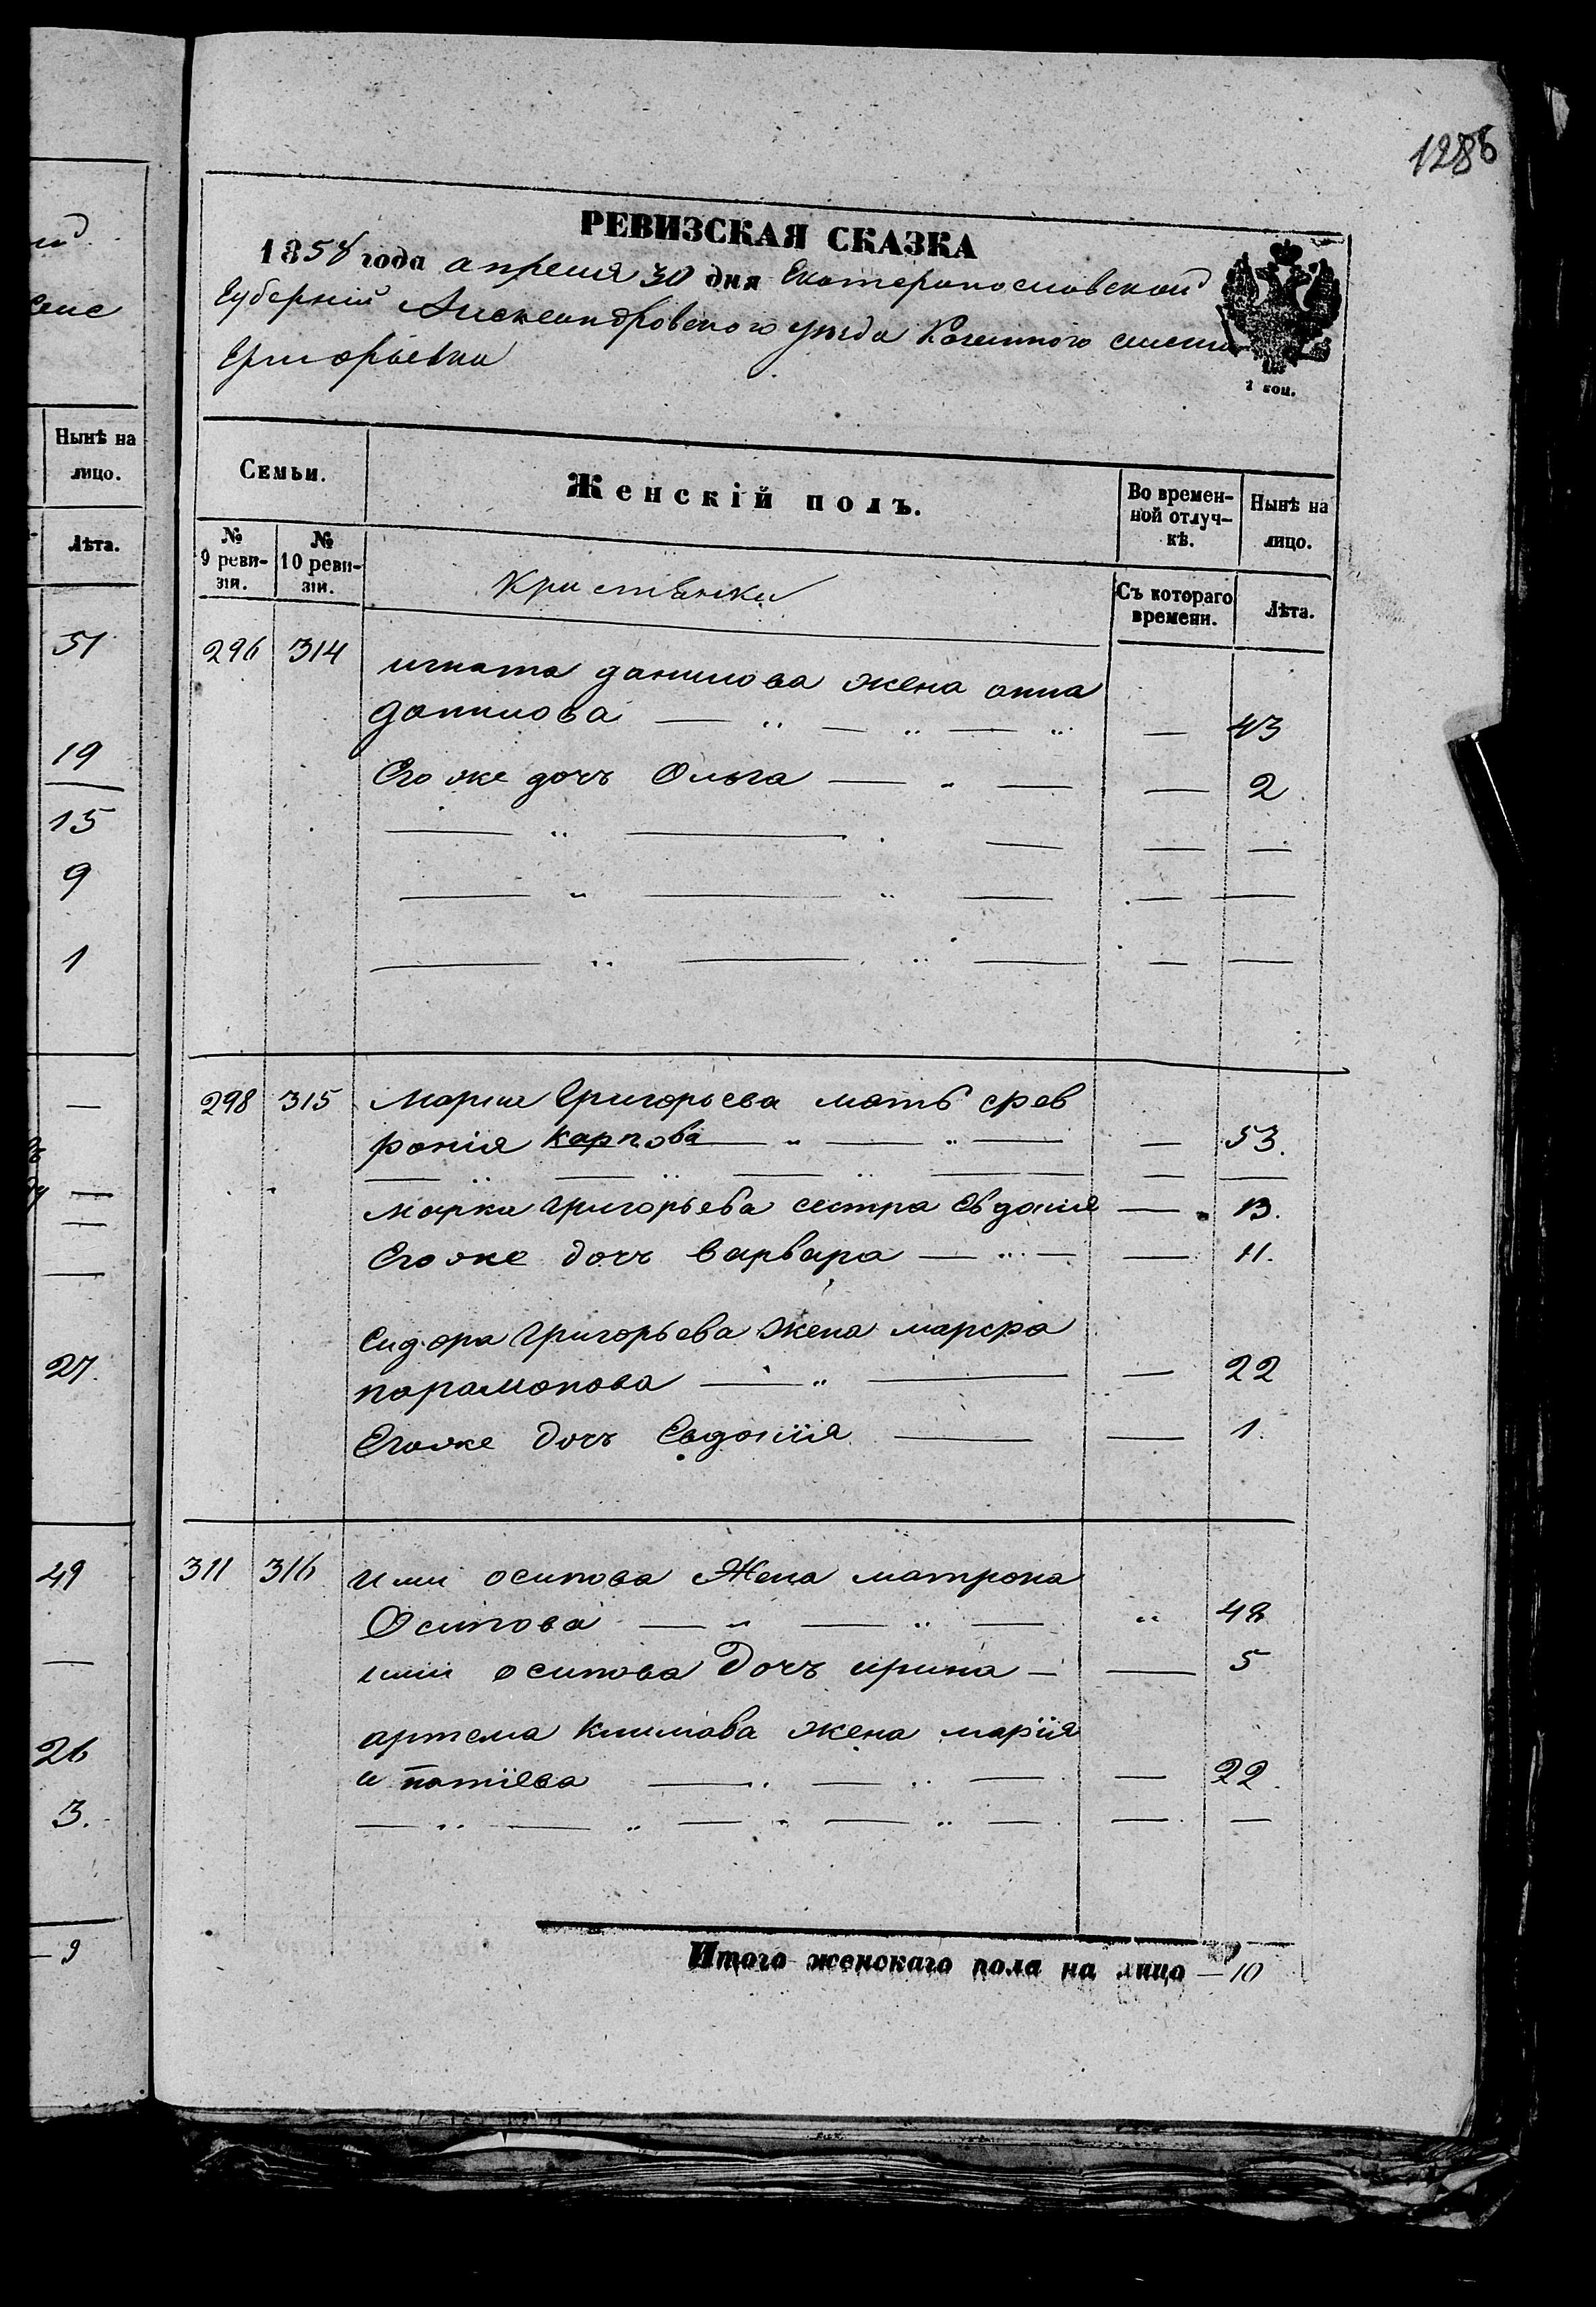 1286
РЕВИЗСКАЯ СКАЗКА
1858 года апреля 30 дня Екатеринославской
Губерніи Александровского уезда Казенного селения
Григорьевки
1 коп.
Семьи.
Женскій полъ.
Во времен-
ной отлуч-
кѣ.
Нынѣ на
лицо.
№
9 реви-
зіи.
№
10 реви-
зіи.
Кристянки
Съ котораго
времени.
Лѣта.
296 314 игната данилова жена анна
данилова — — — — 43
Его же дочъ Ольга — — — 2
298 315 Марка Григорьева мать фев
ронія карпова — — — — 53.
Марка Григорьева сестра Евдокія — 13.
Его же дочъ варвара — — — 11.
Сидора Григорьева жена марфа
парамонова — — — 22
Его же дочъ Евдокія — — 1.
311 316 осипова Жена матрона
Осипова — — — 48
осипова Дочъ ирина — — 5
артема климова жена марїя
ипатїева — — — — 22.
Итого женскаго пола на лицо — 10
Нынѣ на
лицо.
Лѣта.
51
19
15
9
1
27.
49
26
3.
— 9